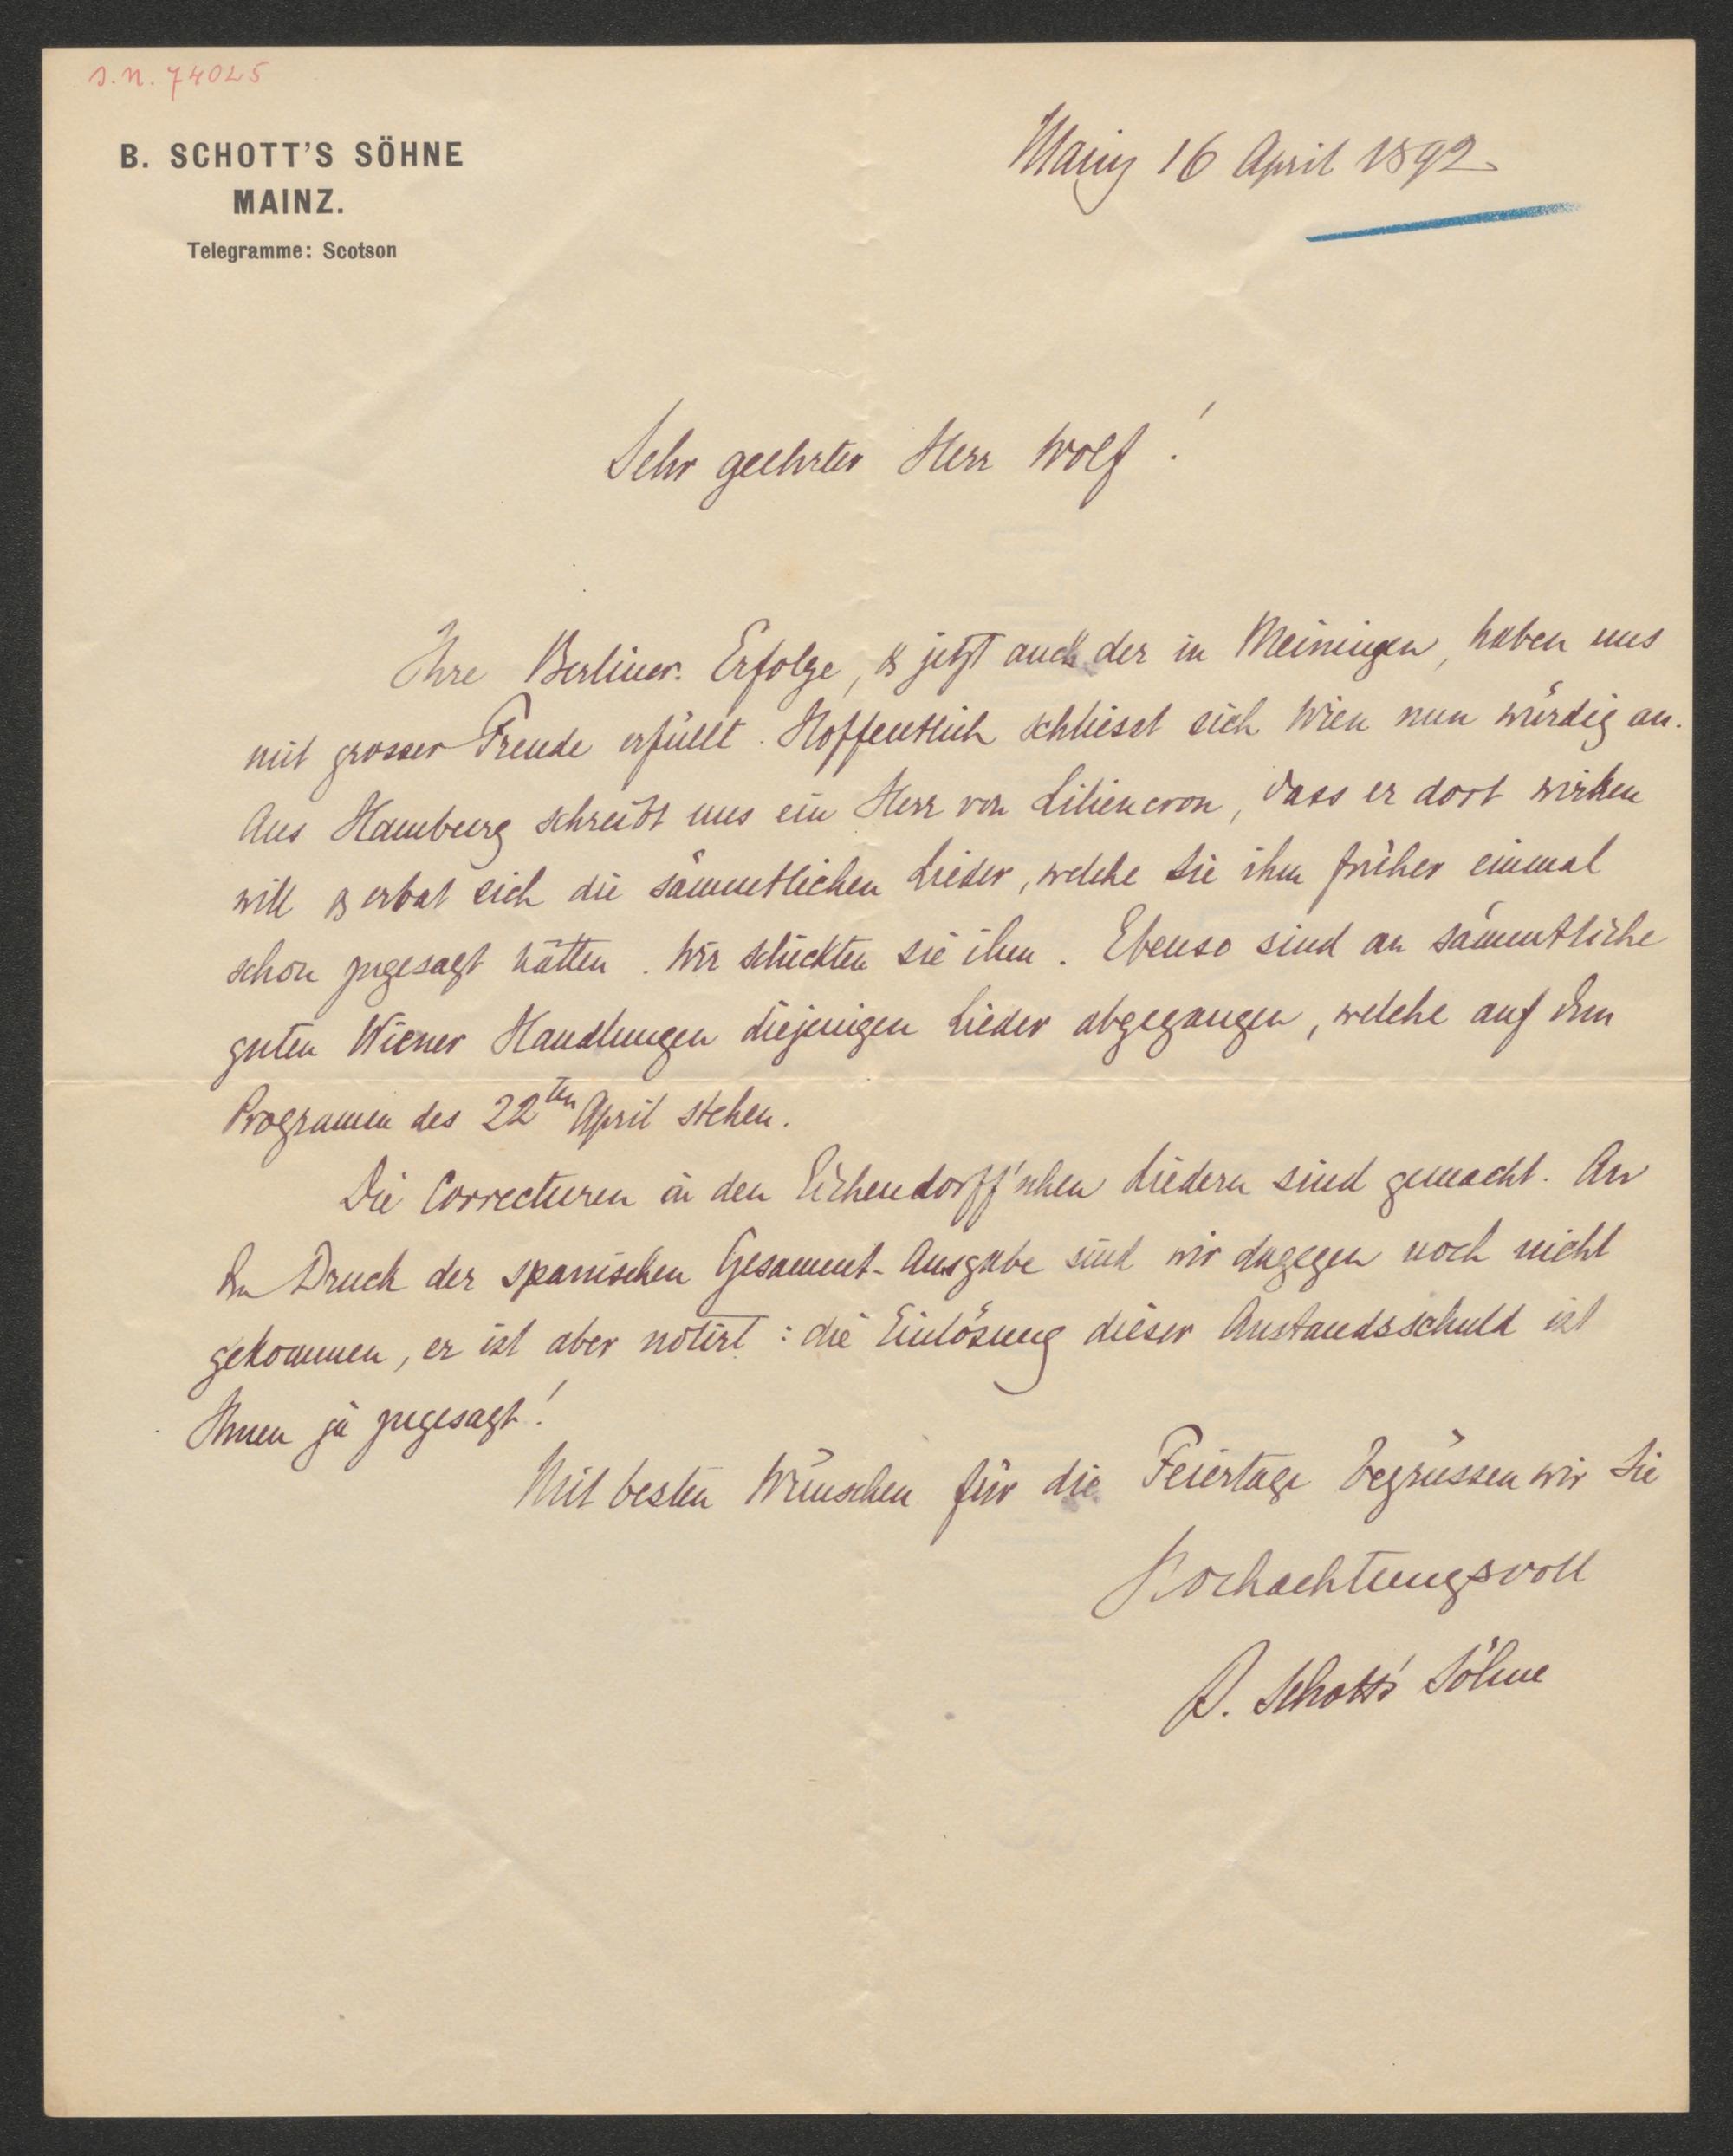 S.N. 74025
B. SCHOTT'S SÖHNE
MAINZ.
Telegramme: Scotson
Mainz 16 April 1892
Sehr geehrter Herr Wolf!
Ihre Berliner Erfolge, & jetzt auch der in Meiningen, haben uns
mit grosser Freude erfüllt. Hoffentlich schliesst sich Wien nun würdig an.
Aus Hamburg schreibt uns ein Herr von Liliencron, dass er dort wirken
will & erbat sich die sämmtlichen Lieder, welche Sie ihm früher einmal
schon zugesagt hätten. Wir schickten sie ihm. Ebenso sind an sämmtliche
guten Wiener Handlungen diejenigen Lieder abgegangen, welche auf dem
Programm des 22ten April stehen.
Die Correcturen in den Eichendorff'schen Liedern sind gemacht. An
den Druck der spanischen Gesammt-Ausgabe sind wir dagegen noch nicht
gekommen, er ist aber notirt: die Einlösung dieser Anstandsschuld ist
Ihnen ja zugesagt!
Mit besten Wünschen für die Feiertage begrüssen wir Sie
Hochachtungsvoll
B. Schott's Söhne